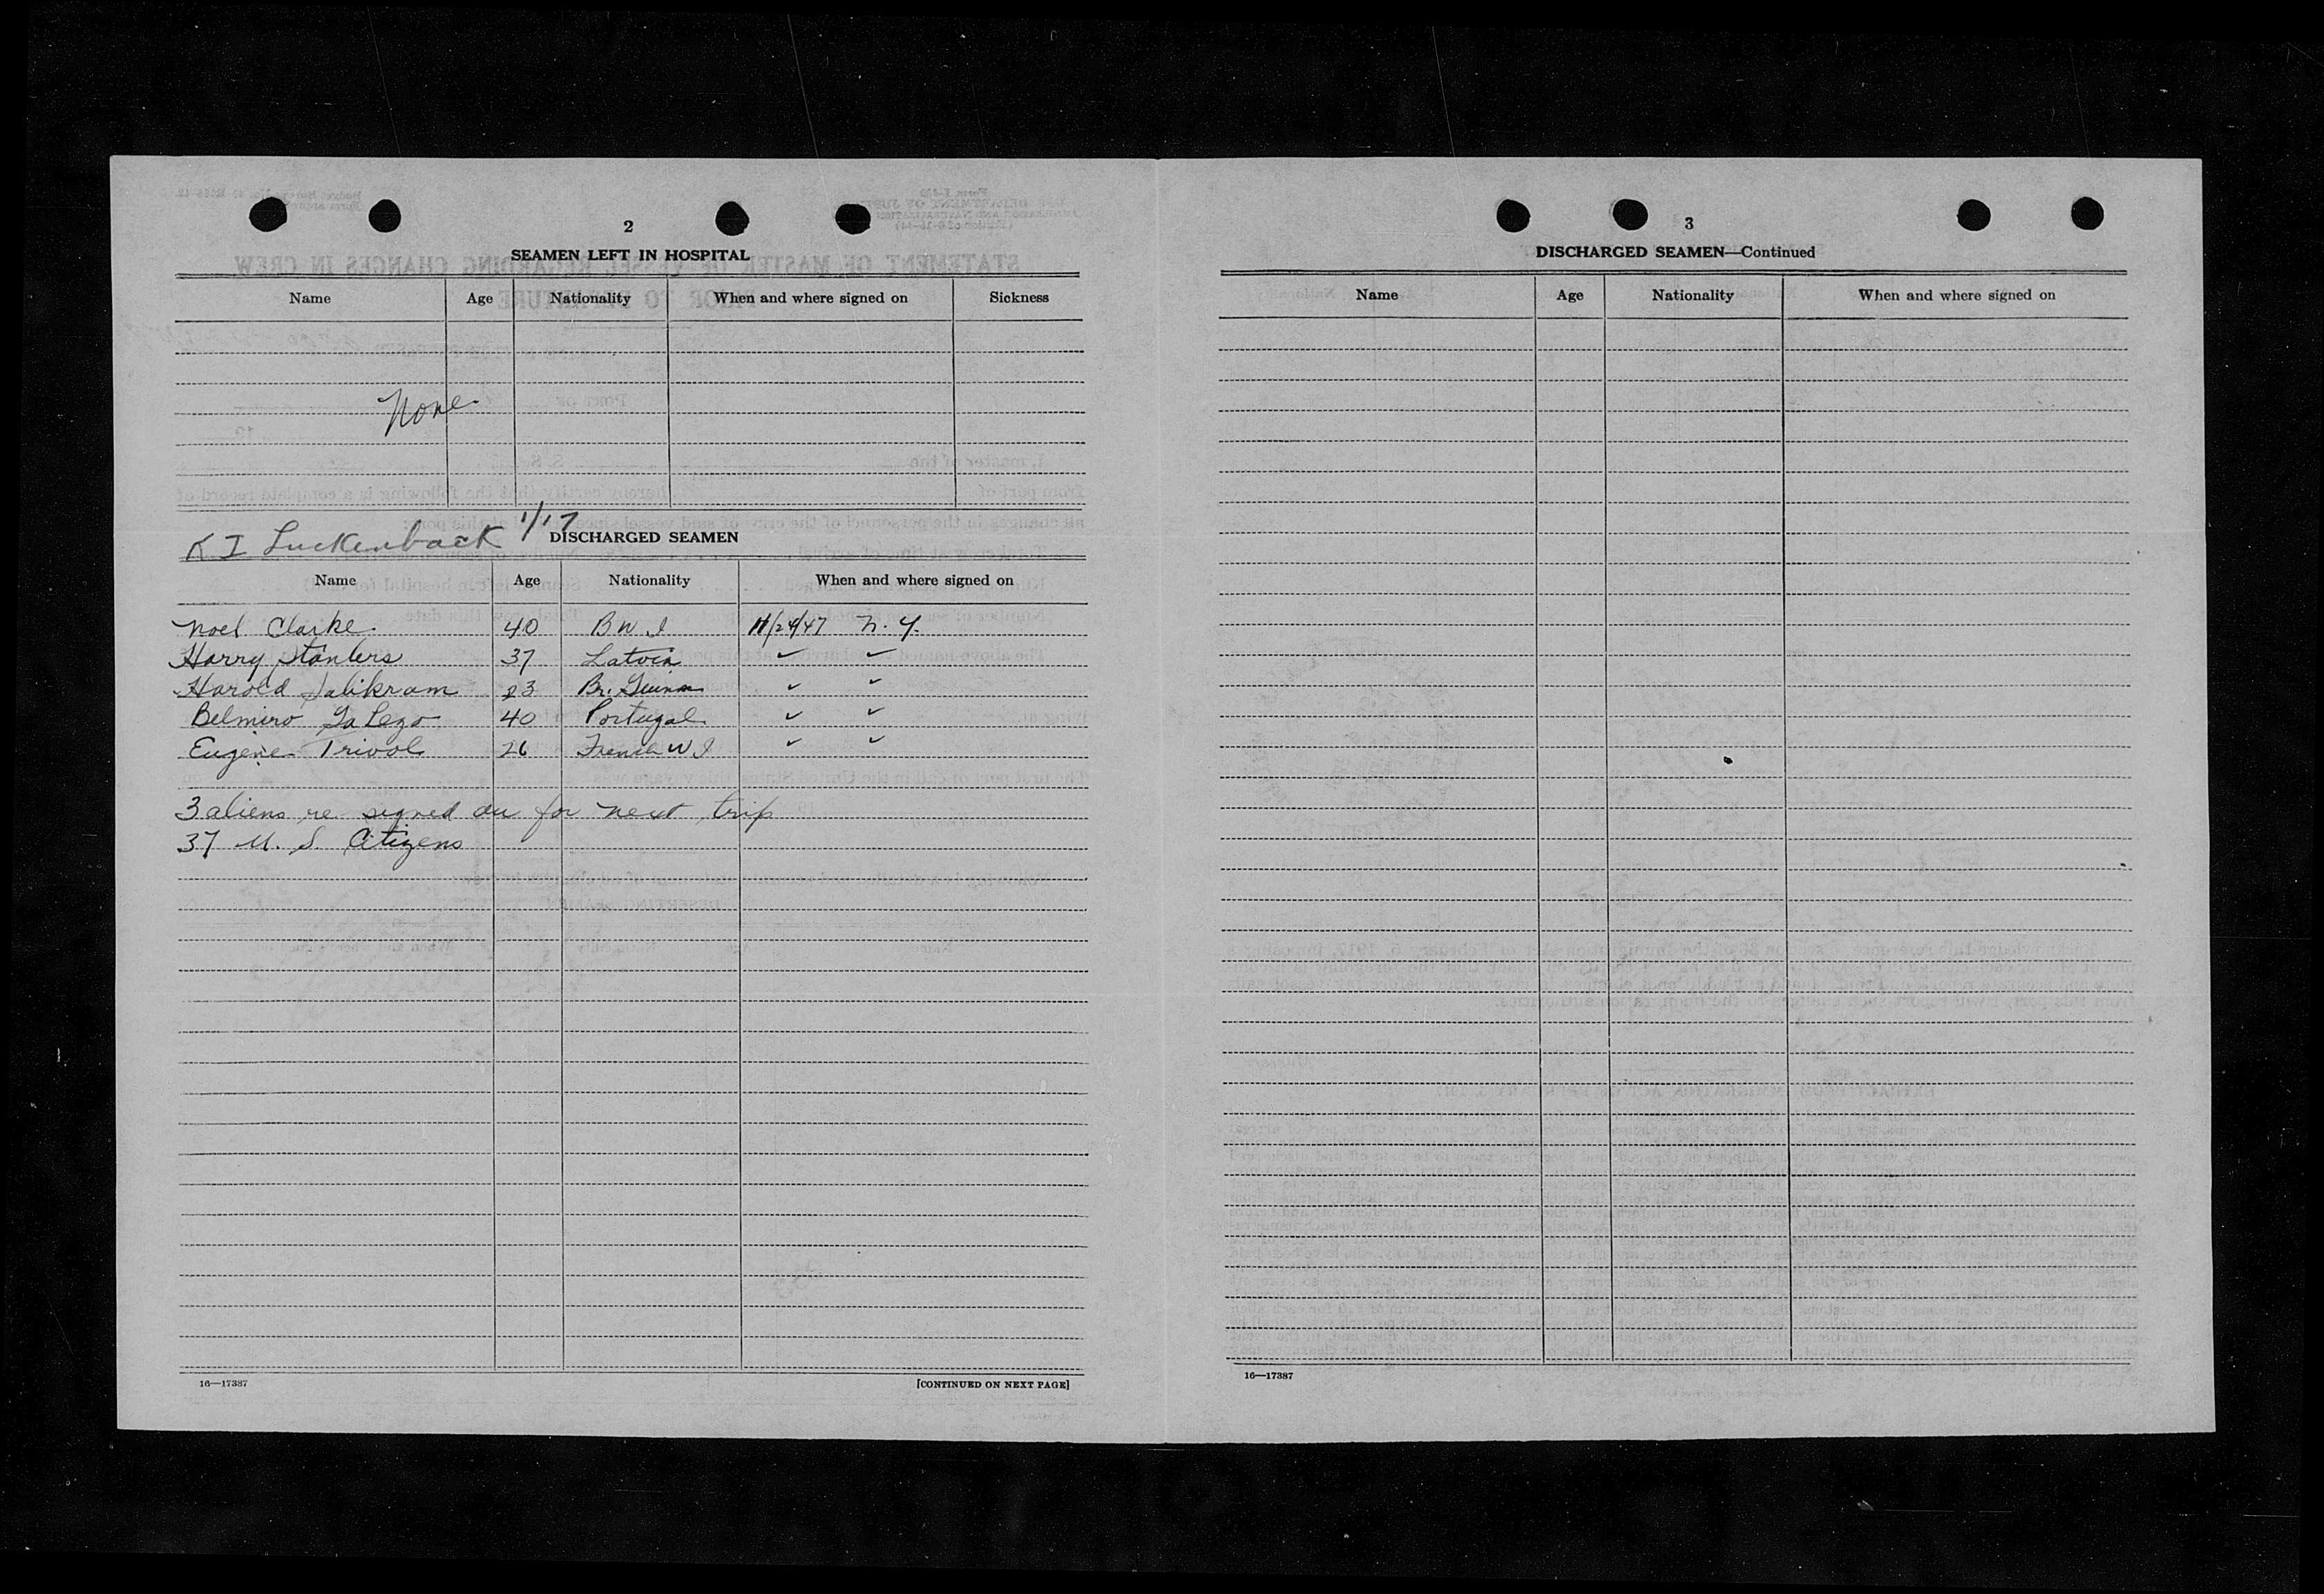 2
SEAMEN LEFT IN HOSPITAL
Name Age Nationality When and where signed on Sickness
None
K I Luckenback 1/17
DISCHARGED SEAMEN
Name Age Nationality When and where signed on
Noel Clarke 40 B W I 11/24/47 N. Y.
Harry Stanlers 37 Latvia ✓ ✓
Harold Jalikram 23 Br. Guina ✓ ✓
Belmiro 40 Portugal ✓ ✓
Eugene Trivol 26 French W I ✓ ✓
3 aliens re signed on for next trip
37 U. S. Citizens
16—17387
[CONTINUED ON NEXT PAGE]
3
DISCHARGED SEAMEN—Continued
Name Age Nationality When and where signed on
16—17387